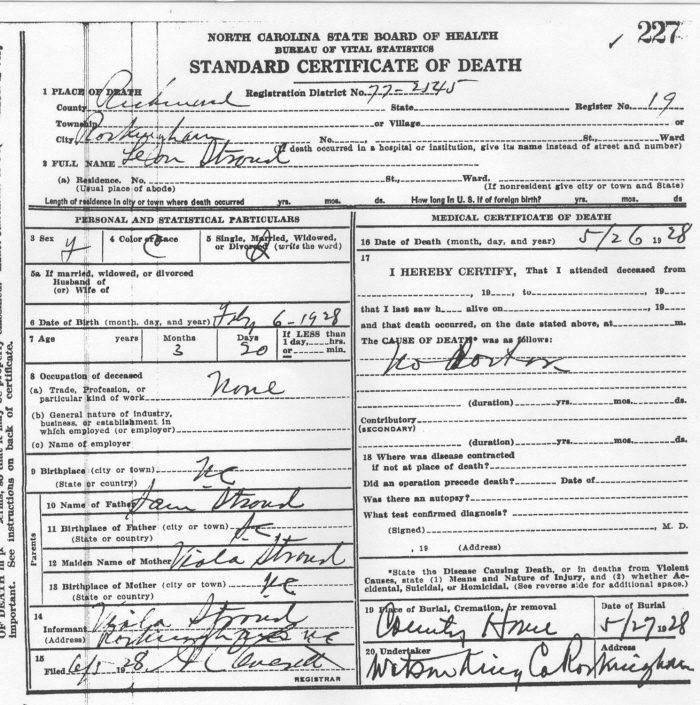 ✓ 227
NORTH CAROLINA STATE BOARD OF HEALTH
BUREAU OF VITAL STATISTICS
STANDARD CERTIFICATE OF DEATH
1 PLACE OF DEATH Registration District No. 77-2545
County Richmond State Register No. 19
Township or Village or
City Rockingham No. St., Ward
(If death occurred in a hospital or institution, give its name instead of street and number)
2 FULL NAME Leon Stroud
(a) Residence. No. St., Ward.
(Usual place of abode) (If nonresident give city or town and State)
Length of residence in city or town where death occurred yrs. mos. ds. How long in U. S. if of foreign birth? yrs. mos. ds.
PERSONAL AND STATISTICAL PARTICULARS
3 Sex 4 Color or Race C 5 Single, Married, Widowed,
or Divorced (write the word)
5a If married, widowed, or divorced
Husband of
(or) Wife of
6 Date of Birth (month, day, and year) Feby 6-1928
7 Age years Months Days If LESS than
1 day, hrs.
3 20 or min.
8 Occupation of deceased
(a) Trade, Profession, or
particular kind of work None
(b) General nature of industry,
business, or establishment in
which employed (or employer)
(c) Name of employer
9 Birthplace (city or town) NC
(State or country)
Parents
10 Name of Father Sam Stroud
11 Birthplace of Father (city or town)
(State or country)
12 Maiden Name of Mother Viola Stroud
13 Birthplace of Mother (city or town) NC
(State or country)
14
Informant Viola Stroud
(Address) Rockingham NC
15
Filed 6/5 1928
REGISTRAR
MEDICAL CERTIFICATE OF DEATH
16 Date of Death (month, day, and year) 5/26 1928
17
I HEREBY CERTIFY, That I attended deceased from
, 19 , to , 19
that I last saw h alive on , 19
and that death occurred, on the date stated above, at m.
The CAUSE OF DEATH* was as follows:
No Doctor
(duration) yrs. mos. ds.
Contributory
(SECONDARY)
(duration) yrs. mos. ds.
18 Where was disease contracted
if not at place of death?
Did an operation precede death? Date of
Was there an autopsy?
What test confirmed diagnosis?
(Signed) , M. D.
, 19 (Address)
*State the Disease Causing Death, or in deaths from Violent
Causes, state (1) Means and Nature of Injury, and (2) whether Ac-
cidental, Suicidal, or Homicidal. (See reverse side for additional space.)
19 Place of Burial, Cremation, or removal Date of Burial
County Home 5/27 1928
20 Undertaker Address
Watson King Co Rockingham
important. See instructions on back of certificate.